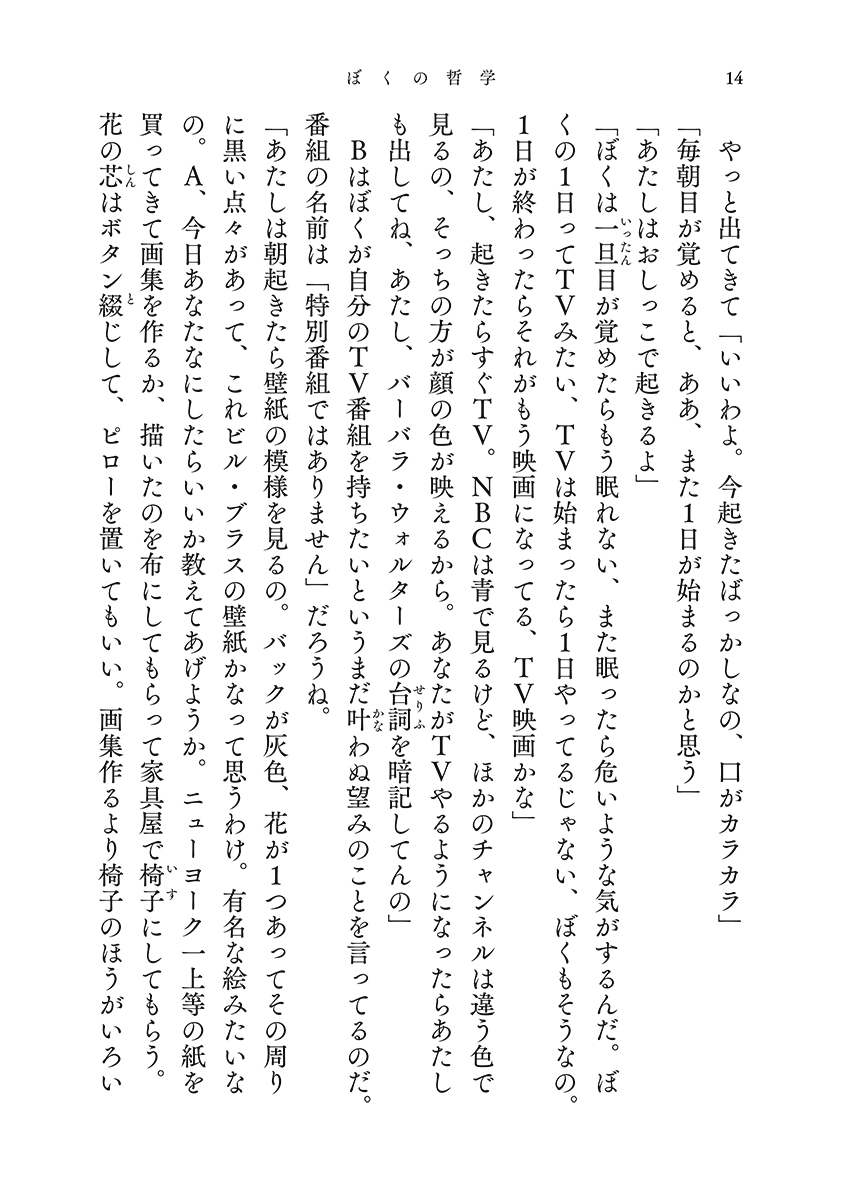 ぼくの哲学
14
やっと出てきて「いいわよ。今起きたばっかしなの、口がカラカラ」
「毎朝目が覚めると、ああ、また1日が始まるのかと思う」
「あたしはおしっこで起きるよ」
「ぼくは一旦目が覚めたらもう眠れない、また眠ったら危いような気がするんだ。ぼ
くの1日ってTVみたい、TVは始まったら1日やってるじゃない、ぼくもそうなの。
1日が終わったらそれがもう映画になってる、TV映画かな」
「あたし、起きたらすぐTV。NBCは青で見るけど、ほかのチャンネルは違う色で
見るの、そっちの方が顔の色が映えるから。あなたがTVやるようになったらあたし
も出してね、あたし、バーバラ・ウォルターズの台詞を暗記してんの」
Bはぼくが自分のTV番組を持ちたいというまだ叶わぬ望みのことを言ってるのだ。
番組の名前は「特別番組ではありません」だろうね。
「あたしは朝起きたら壁紙の模様を見るの。バックが灰色、花が1つあってその周り
に黒い点々があって、これビル・ブラスの壁紙かなって思うわけ。有名な絵みたいな
の。A、今日あなたなにしたらいいか教えてあげようか。ニューヨーク一上等の紙を
買ってきて画集を作るか、描いたのを布にしてもらって家具屋で椅子にしてもらう。
花の芯はボタン綴じして、ピローを置いてもいい。画集作るより椅子のほうがいろい